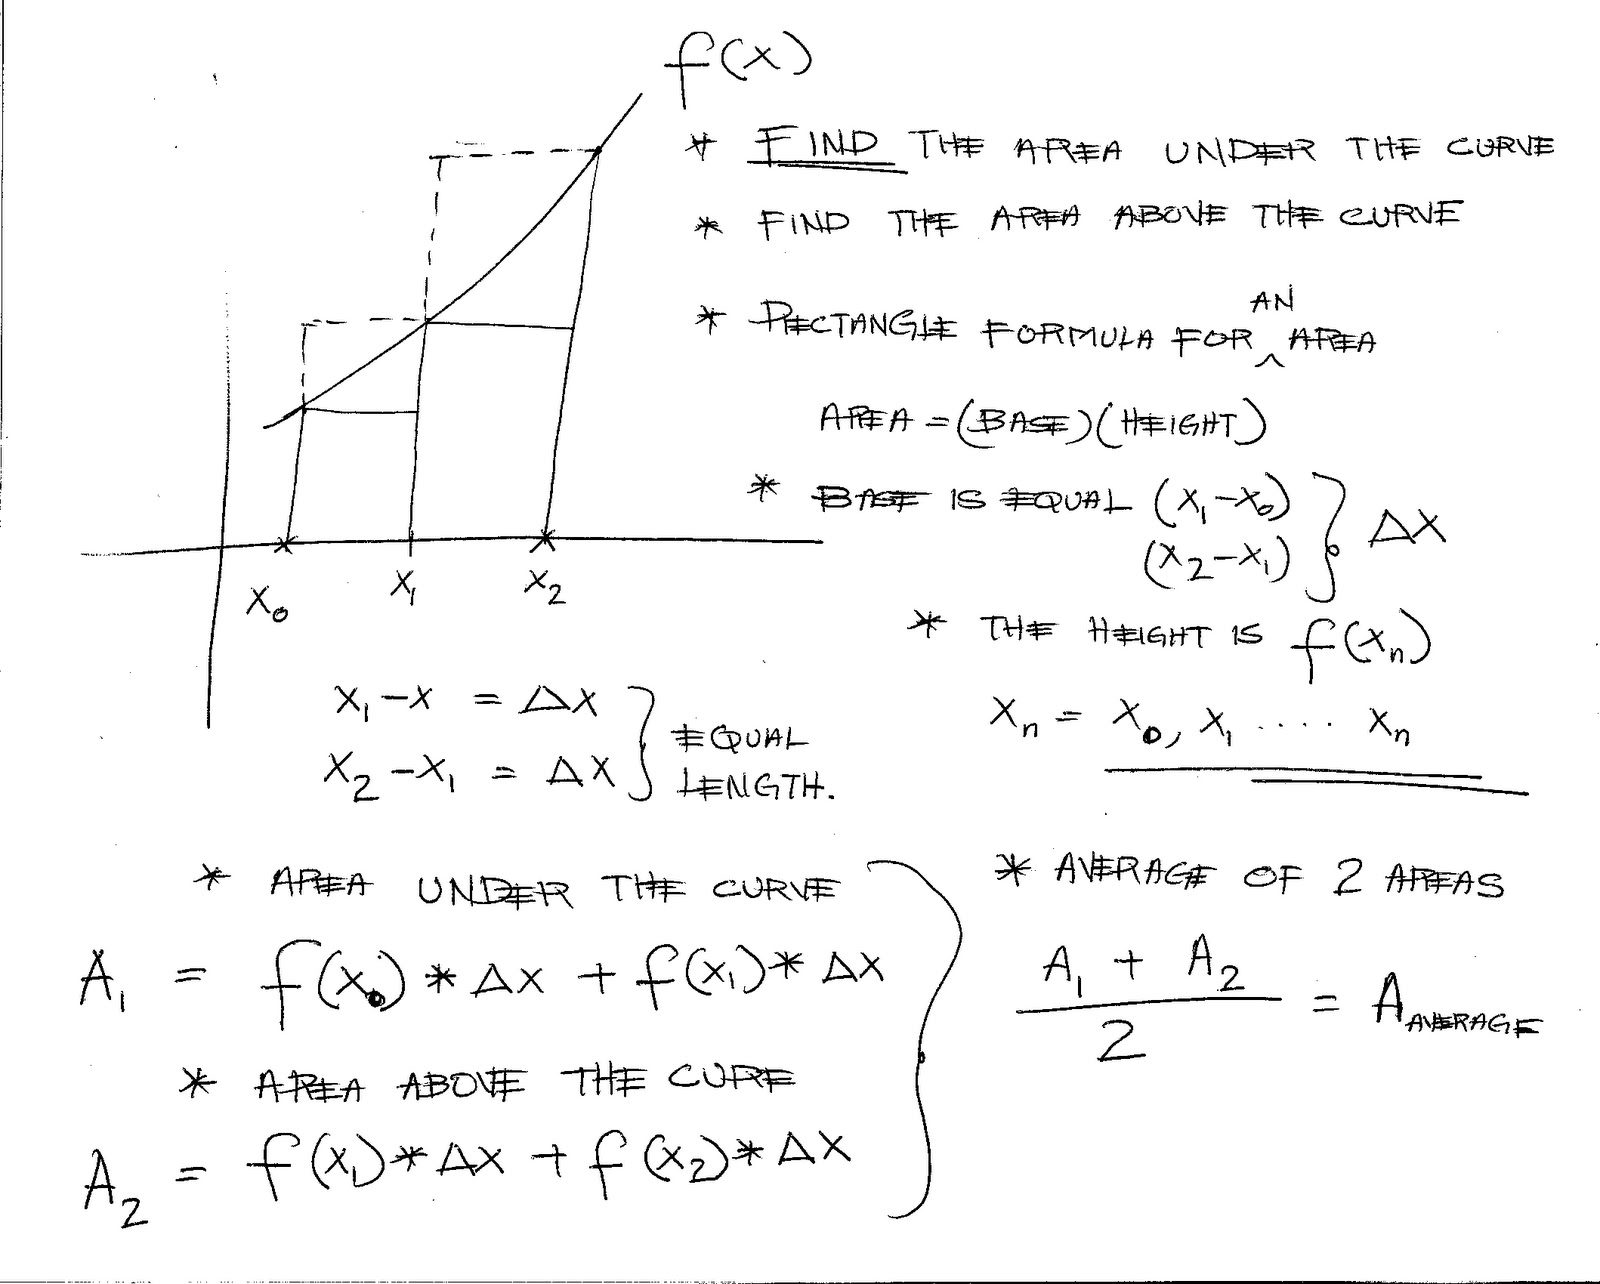 f(x)
* FIND THE AREA UNDER THE CURVE
* FIND THE AREA ABOVE THE CURVE
* RECTANGLE FORMULA FOR AN AREA
AREA = (BASE)(HEIGHT)
* BASE IS EQUAL (X₁-X₀)
(X₂-X₁) } ΔX
* THE HEIGHT IS f(Xₙ)
Xₙ = X₀, X₁ .... Xₙ
X₀ X₁ X₂
X₁-X = ΔX
X₂-X₁ = ΔX } EQUAL
LENGTH.
* AREA UNDER THE CURVE
A₁ = f(X₀) * ΔX + f(X₁) * ΔX
* AREA ABOVE THE CURE
A₂ = f(X₁) * ΔX + f(X₂) * ΔX
* AVERAGE OF 2 AREAS
A₁ + A₂
2
= A AVERAGE